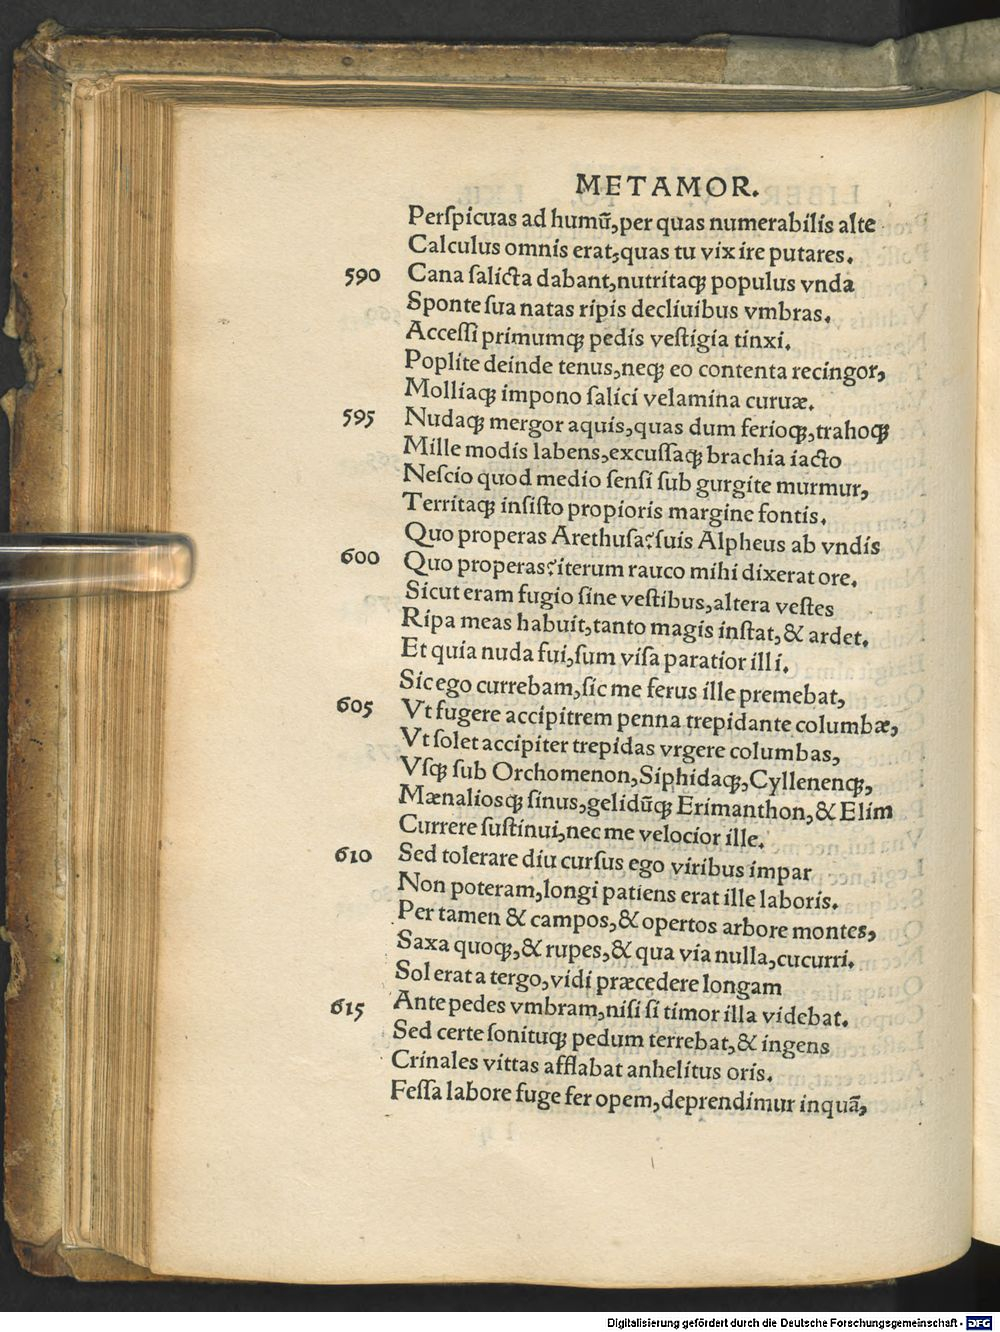 METAMOR.
Perſpicuas ad humũ,per quas numerabilis alte
Calculus omnis erat,quas tu vix ire putares.
590 Cana ſalicta dabant,nutritaq; populus vnda
Sponte ſua natas ripis decliuibus vmbras.
Acceſſi primumq; pedis veſtigia tinxi.
Poplite deinde tenus,neq; eo contenta recingor,
Molliaq; impono ſalici velamina curuæ.
595 Nudaq; mergor aquis,quas dum ferioq;,trahoq;
Mille modis labens,excuſſaq; brachia iacto
Neſcio quod medio ſenſi ſub gurgite murmur,
Territaq; inſiſto propioris margine fontis.
Quo properas Arethuſa?ſuis Alpheus ab vndis
600 Quo properas?iterum rauco mihi dixerat ore.
Sicut eram fugio ſine veſtibus,altera veſtes
Ripa meas habuit,tanto magis inſtat,& ardet.
Et quia nuda fui,ſum viſa paratior illi.
Sic ego currebam,ſic me ferus ille premebat,
605 Vt fugere accipitrem penna trepidante columbæ,
Vt ſolet accipiter trepidas vrgere columbas,
Vſq; ſub Orchomenon,Siphidaq;,Cyllenenq;,
Mænaliosq; ſinus,gelidũq; Erimanthon,& Elim
Currere ſuſtinui,nec me velocior ille.
610 Sed tolerare diu curſus ego viribus impar
Non poteram,longi patiens erat ille laboris.
Per tamen & campos,& opertos arbore montes,
Saxa quoq;,& rupes,& qua via nulla,cucurri.
Sol erat a tergo,vidi præcedere longam
615 Ante pedes vmbram,niſi ſi timor illa videbat.
Sed certe ſonituq; pedum terrebat,& ingens
Crinales vittas afflabat anhelitus oris.
Feſſa labore fuge fer opem,deprendimur inquã,
Digitalisierung gefördert durch die Deutsche Forschungsgemeinschaft - DFG